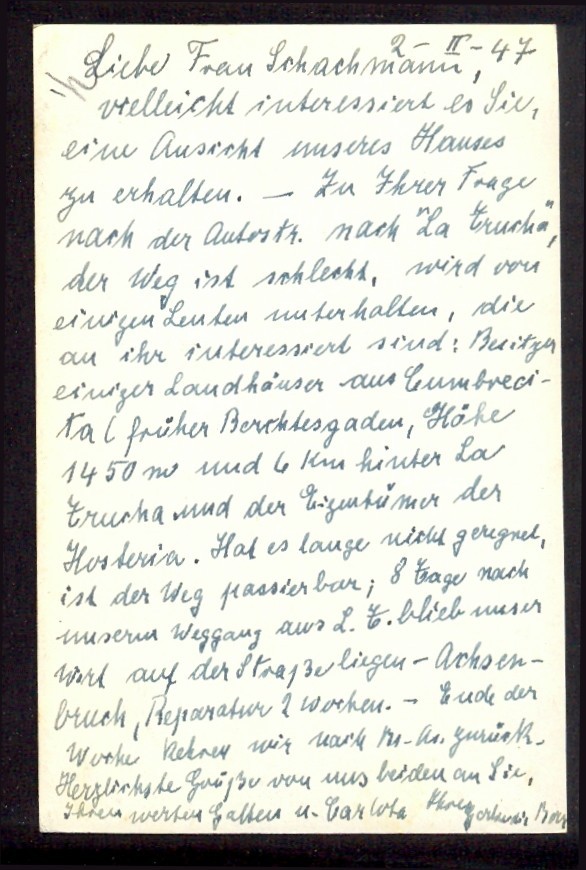 2 - II - 47
Liebe Frau Schachmann,
vielleicht interessiert es Sie,
eine Ansicht unseres Hauses
zu erhalten. — Zu Ihrer Frage
nach der Autostr. nach "La Trucha",
der Weg ist schlecht, wird von
einigen Leuten unterhalten, die
an ihr interessiert sind: Besitzer
einiger Landhäuser aus Cumbreci-
ta (früher Berchtesgaden, Höhe
1450 m und 6 Km hinter La
Trucha und der Eigentümer der
Hosteria. Hat es lange nicht geregnet,
ist der Weg passierbar; 8 Tage nach
unserm Weggang aus L. T. blieb unser
Wirt auf der Straße liegen - Achsen-
bruch, Reparatur 2 Wochen. - Ende der
Woche kehren wir nach Bs-As. zurück.
Herzlichste Grüße von uns beiden an Sie,
Ihren werten Gatten u. Carlota Ihre